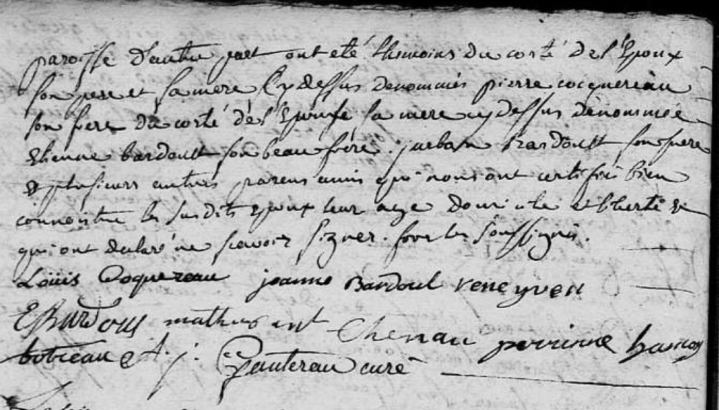 paroisse d'autre part ont eté themoins du costé de l'Epoux
son pere et sa mere cy dessus denommés pierre cocquereau
son frere du costé de l'Epouse sa mere cy dessus denommée
Etienne bardoult son beau frere. jurbain Bardoult son frere
& plusieurs autres parens amis qui nous ont certifié bien
connoitre les susdits Epoux leur age domicile & liberté &
qui ont declaré ne scavoir signer. fors les soussignés.
Louis Coquereau jeanne Bardoul rene yven
E Bardoul mathurin Chenau perrinne
botreau & j. Gautereau curé